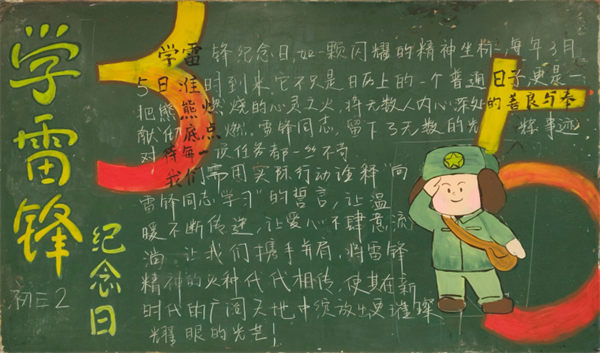 学雷锋
纪念日
初三2
3
5
学雷锋纪念日,如一颗闪耀的精神坐标,每年3月
5日准时到来,它不只是日历上的一个普通日子更是一
把熊熊燃烧的心灵之火,将无数人内心深处的善良与奉
献彻底点燃。雷锋同志,留下了无数的光辉事迹
对待每一次任务都一丝不苟
我们需用实际行动诠释“向
雷锋同志学习”的誓言,让温
暖不断传递,让爱心不肆意流
淌,让我们携手并肩,将雷锋
精神的火种代代相传,使其在新
时代的广阔天地中绽放出更璀璨
耀眼的光芒!